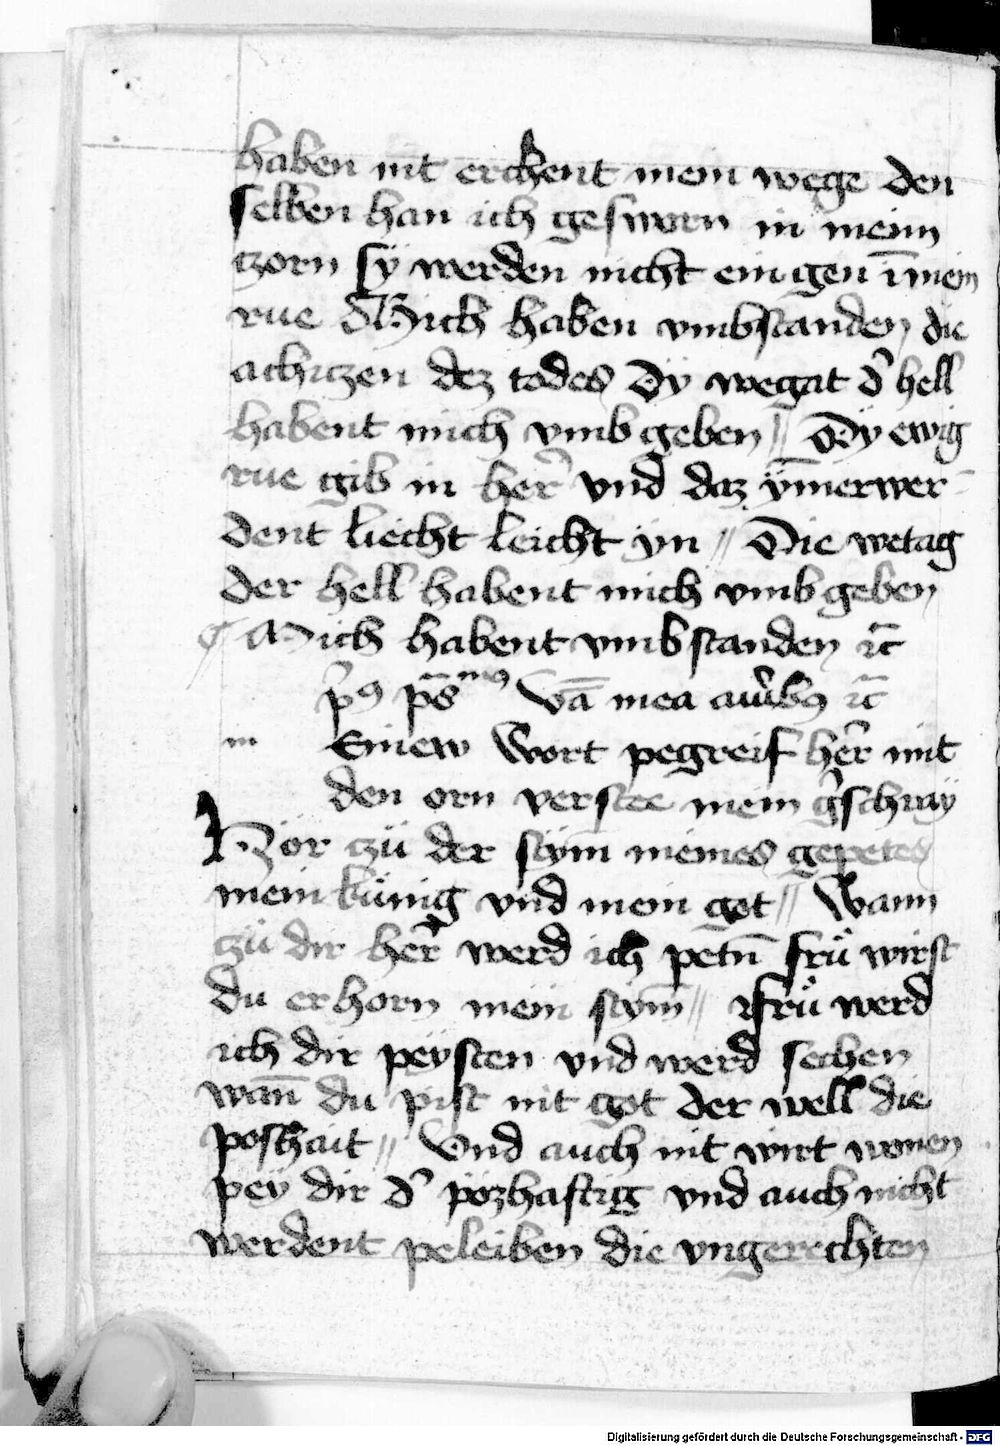 haben nit erchent mein wege den
selben han ich gesworn in meinn
czorn sÿ werden nicht ein gen ī mein
rue Mich haben vmbstanden die
achiczen dez todes Dÿ wegat d' hell
habent mich vmb geben // Dÿ ewig
rue gib in her' vnd daz ÿm̄erwer-
dent liecht leicht ÿn // Die wetag
der hell habent mich vmb geben
Mich habent vmb standen ꝛc̄
mea ꝛc̄
Einew wort pegreif her' mit
den orn verstee mein g'schray
Hör czü der stÿm̄ meines gepetes
mein künig vnd mein got // Wann
czü dir her' werd ich petn̄ frü wirst
du erhorn mein stÿm̄ // Frü werd
ich dir peÿsten vnd werd sechen
wan̄ du pist nit got der well die
poschait // Vnd auch nit wirt wonen
peÿ dir d' pözhaftig vnd auch nicht
werdent peleiben die vngerechten
Digitalisierung gefördert durch die Deutsche Forschungsgemeinschaft - DFG